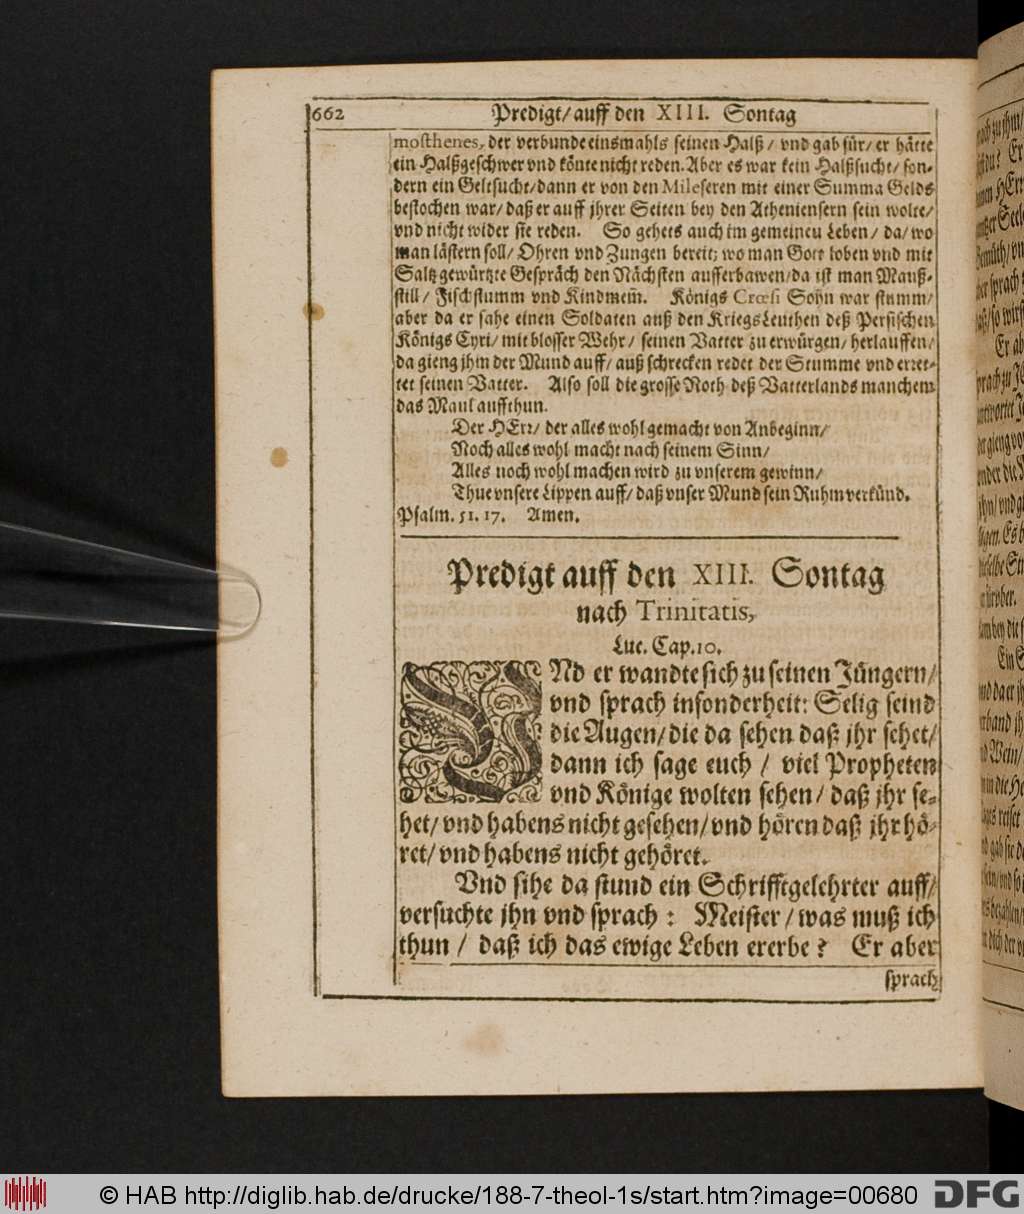 662 Predigt/ auff den XIII. Sontag
mosthenes, der verbunde einsmahls seinen Halß/ vnd gab für/ er hätte
ein Halßgeschwer vnd könte nicht reden. Aber es war kein Halßsucht/ son-
dern ein Geltsucht/ dann er von den Mileseren mit einer Summa Gelds
bestochen war/ daß er auff jhrer Seiten bey den Atheniensern sein wolte/
vnd nicht wider sie reden. So gehets auch im gemeinen Leben/ da/ wo
man lästern soll/ Ohren vnd Zungen bereit; wo man Gott loben vnd mit
Saltz gewürtzte Gespräch den Nächsten aufferbawen/ da ist man Mauß-
still/ Fischstumm vnd Kindmem̃. Königs Crœsi Sohn war stumm/
aber da er sahe einen Soldaten auß den KriegsLeuthen deß Persischen
Königs Cyri/ mit blosser Wehr/ seinen Vatter zu erwürgen/ herlauffen/
da gieng jhm der Mund auff/ auß schrecken redet der Stumme vnd erret-
tet seinen Vatter. Also soll die grosse Noth deß Vatterlands manchem
das Maul auffthun.
Der HErr/ der alles wohl gemacht von Anbeginn/
Noch alles wohl macht nach seinem Sinn/
Alles noch wohl machen wird zu vnserem gewinn/
Thue vnsere Lippen auff/ daß vnser Mund sein Ruhm verkünd.
Psalm. 51. 17. Amen.
Predigt auff den XIII. Sontag
nach Trinitatis,
Luc. Cap. 10.
VNd er wandte sich zu seinen Jüngern/
vnd sprach insonderheit: Selig seind
die Augen/ die da sehen daß jhr sehet/
dann ich sage euch/ viel Propheten
vnd Könige wolten sehen/ daß jhr se-
het/ vnd habens nicht gesehen/ vnd hören daß jhr hö-
ret/ vnd habens nicht gehöret.
Vnd sihe da stund ein Schrifftgelehrter auff/
versuchte jhn vnd sprach: Meister/ was muß ich
thun/ daß ich das ewige Leben ererbe? Er aber
sprach
© HAB http://diglib.hab.de/drucke/188-7-theol-1s/start.htm?image=00680 DFG